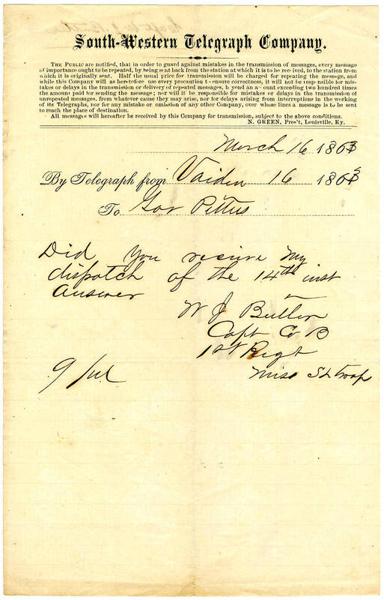 South-Western Telegraph Company.
THE PUBLIC are notified, that in order to guard against mistakes in the transmission of messages, every message
of importance ought to be repeated, by being sent back from the station at which it is to be received, to the station from
which it is originally sent. Half the usual price for transmission will be charged for repeating the message, and
while this Company will as heretofore use every precaution to ensure correctness, it will not be responsible for mis-
takes or delays in the transmission or delivery of repeated messages, beyond an amount exceeding two hundred times
the amount paid for sending the message; nor will it be responsible for mistakes or delays in the transmission of
unrepeated messages, from whatever cause they may arise, nor for delays arising from interruptions in the working
of its Telegraphs, nor for any mistake or omission of any other Company, over whose lines a message is to be sent
to reach the place of destination.
All messages will hereafter be received by this Company for transmission, subject to the above conditions.
N. GREEN, Pres't, Louisville, Ky.
March 16 1863
By Telegraph from Vaiden 16 1863
To Gov Pettus
Did you recieve my
dispatch of the 14th inst
answer
W J Butler
Capt Co B
1st Regt
Miss St Troop
9